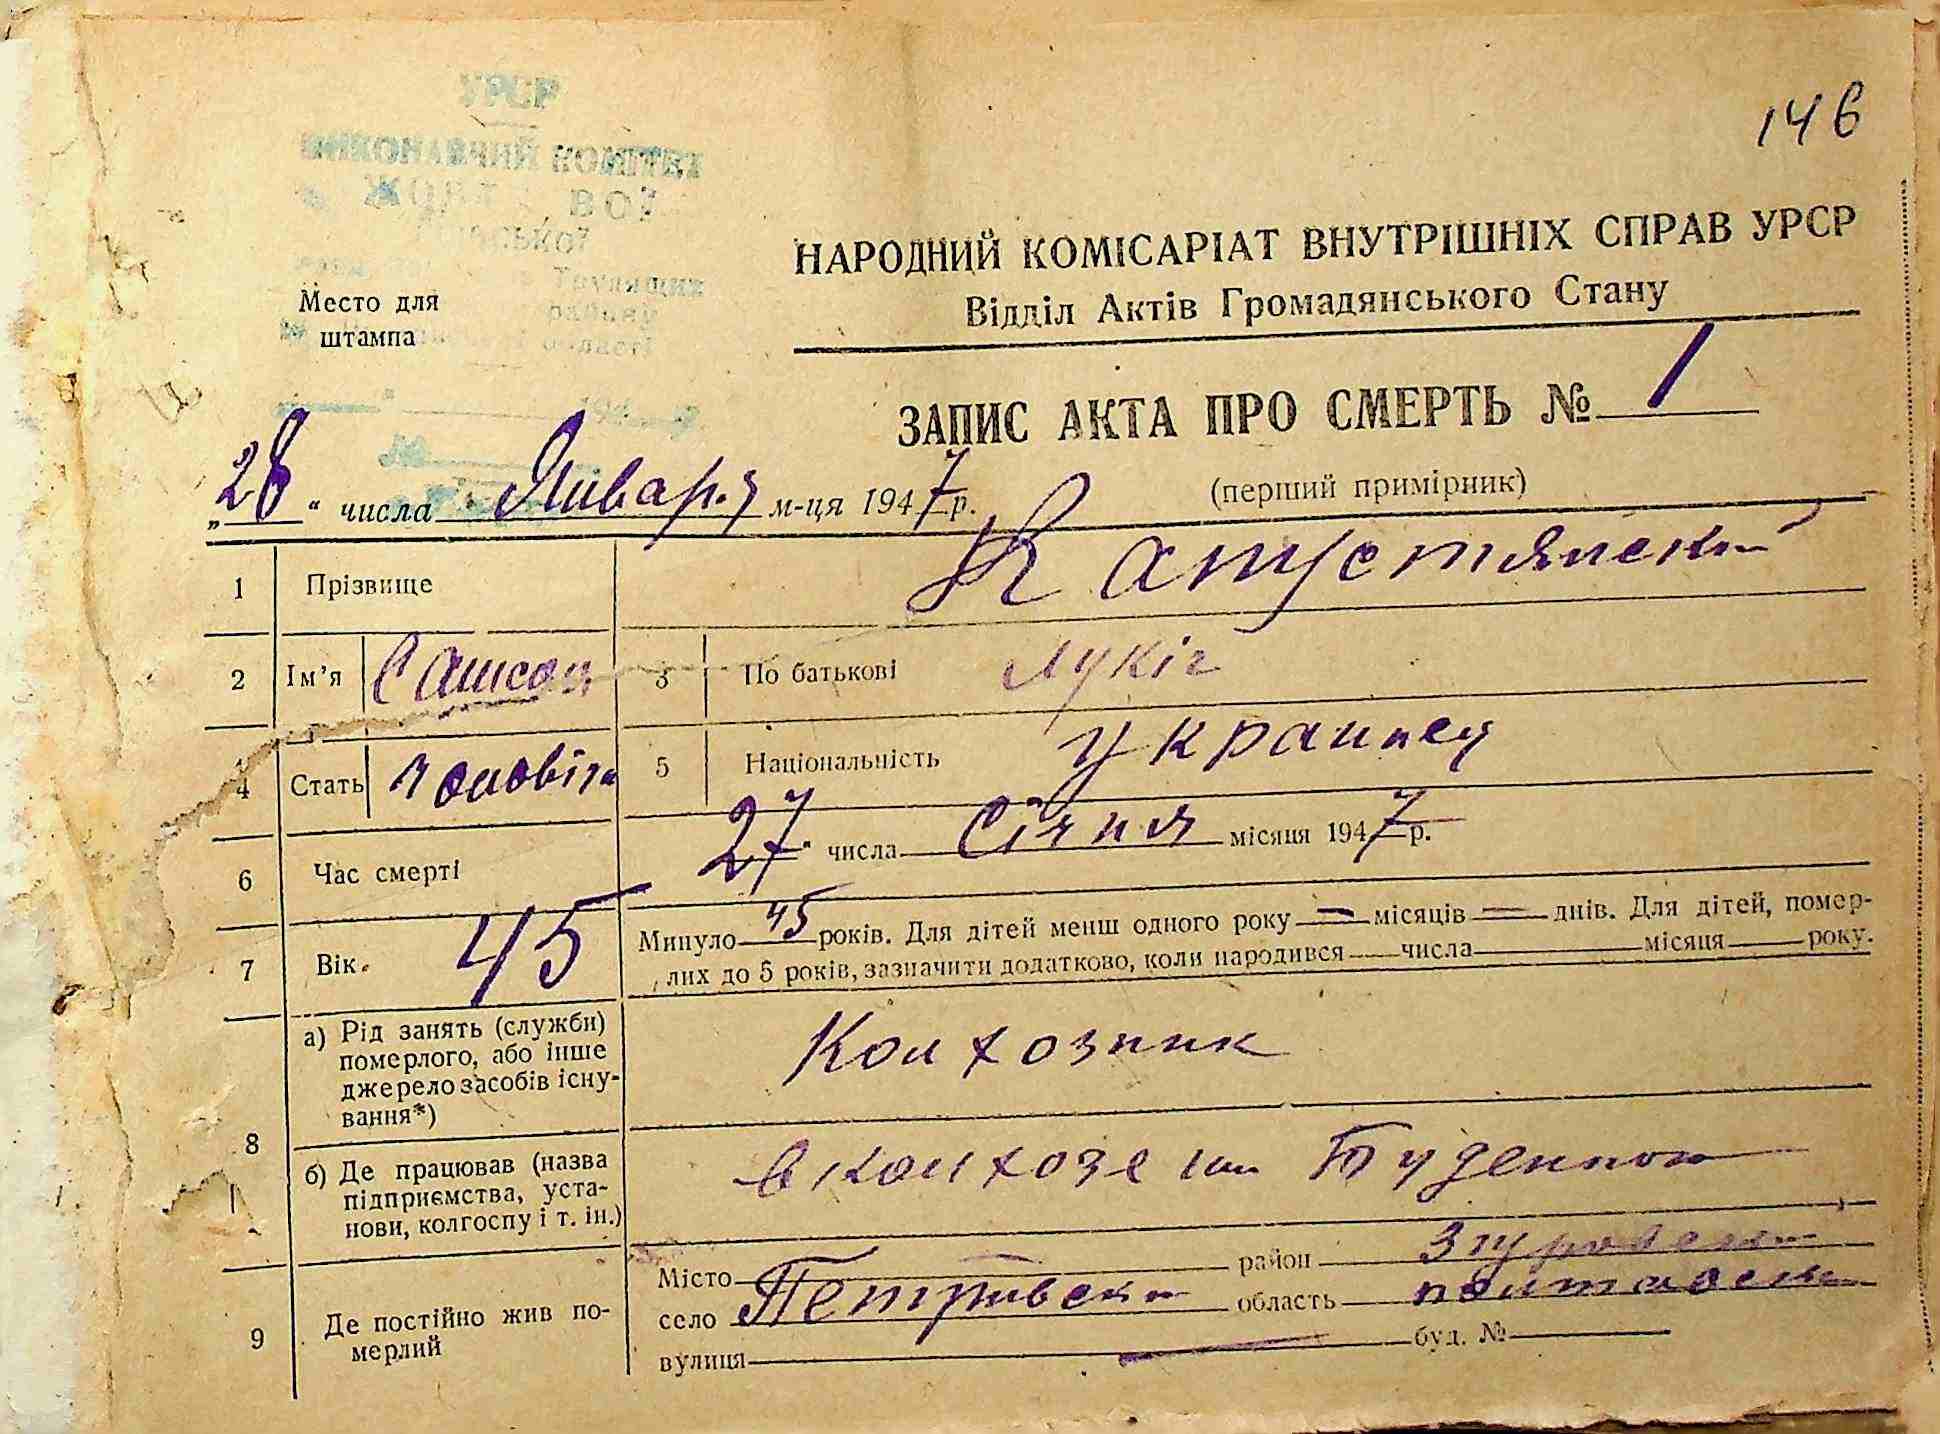 УРСР
146
ВИКОНАВЧИЙ КОМІТЕТ
НАРОДНИЙ КОМІСАРІАТ ВНУТРІШНІХ СПРАВ УРСР
Відділ Актів Громадянського Стану
Трудящих
району
області
Место для
штампа
ЗАПИС АКТА ПРО СМЕРТЬ № 1
(перший примірник)
„28“ числа Января м-ця 1947 р.
1 Прізвище Капустянский
2 Ім'я Самсон 3 По батькові Лукіч
4 Стать Чоловіча 5 Національність Украинец
6 Час смерті 27 числа Січня місяця 1947 р.
7 Вік. 45 Минуло 45 років. Для дітей менш одного року — місяців — днів. Для дітей, помер-
лих до 5 років, зазначити додатково, коли народився числа місяця року.
8 а) Рід занять (служби)
померлого, або інше
джерело засобів існу-
вання*)
Колхозник
б) Де працював (назва
підприємства, уста-
нови, колгоспу і т. ін.)
в колхозе им Буденного
9 Де постійно жив по-
мерлий
Місто район Згуровский
село Петривски область полтавская
вулиця буд. №